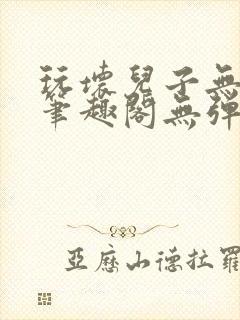 玩壞兒子無
筆趣閣無彈
亞歷山德拉羅